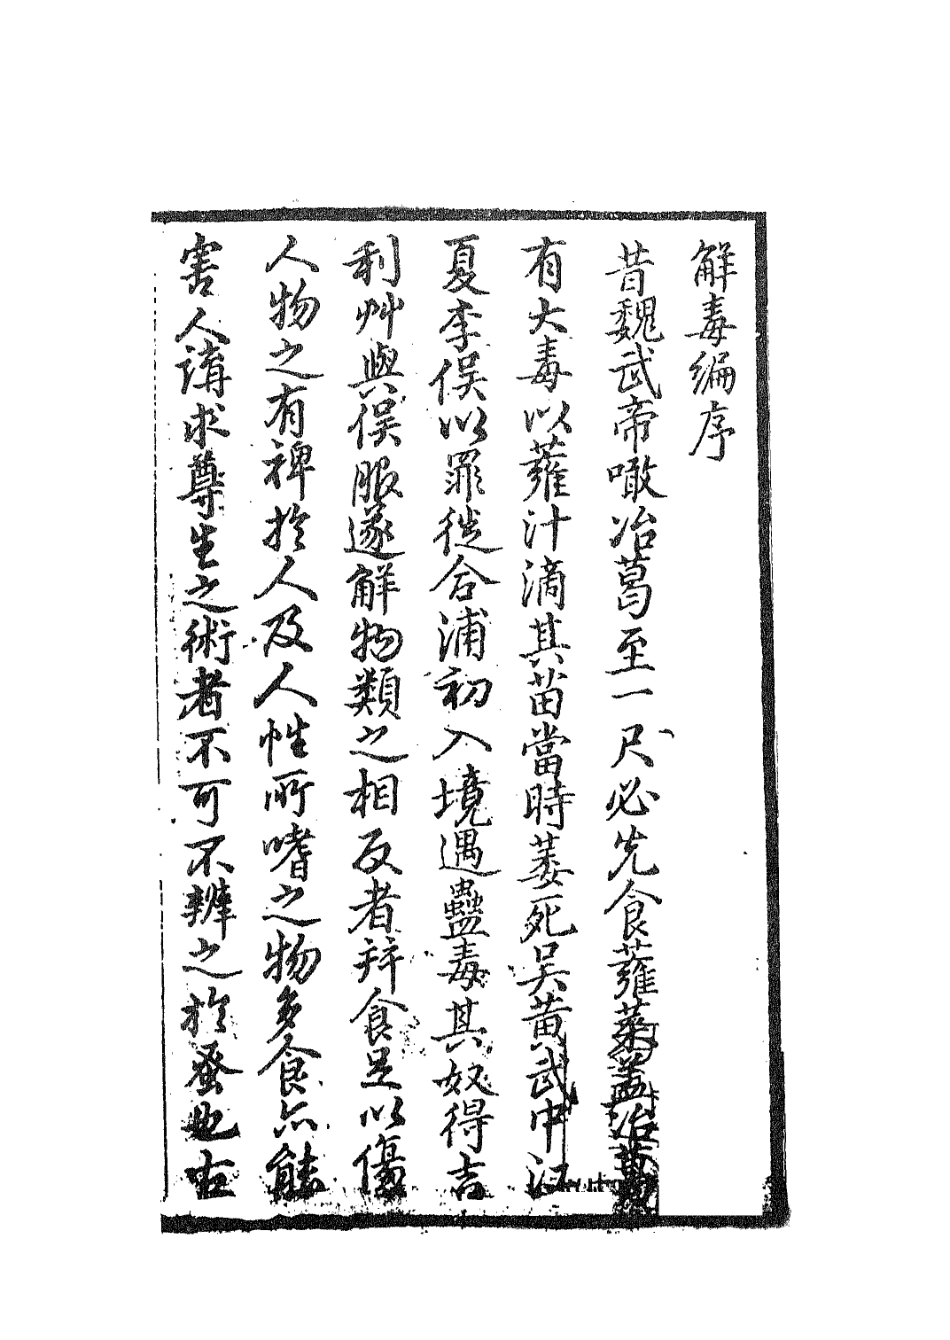 解毒編序
昔魏武帝噉冶葛至一尺必先食蕹菜蓋冶葛
有大毒以蕹汁滴其苗當時萎死吴黄武中江
夏李俣以罪徙合浦初入境遇蠱毒其奴得吉
利艸與俣服遂解物類之相反者并食足以傷
人物之有裨於人及人性所嗜之物多食亦能
害人講求尊生之術者不可不辨之於蚤也右